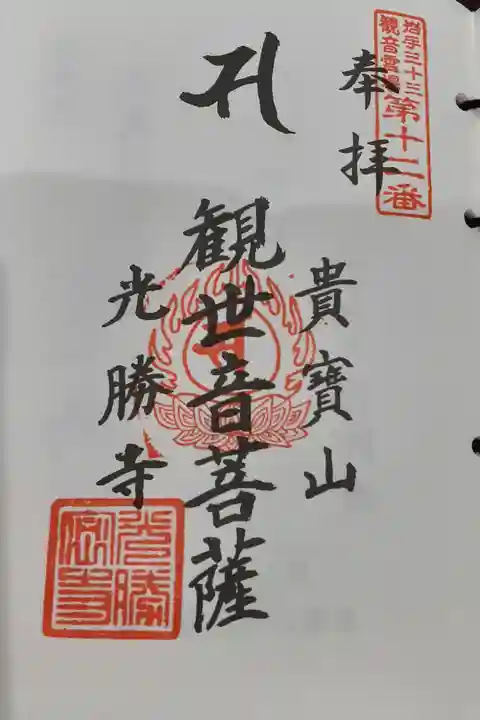 岩手三十三
観音霊場
第十二番
奉拝
貴寶山
観世音菩薩
光勝寺